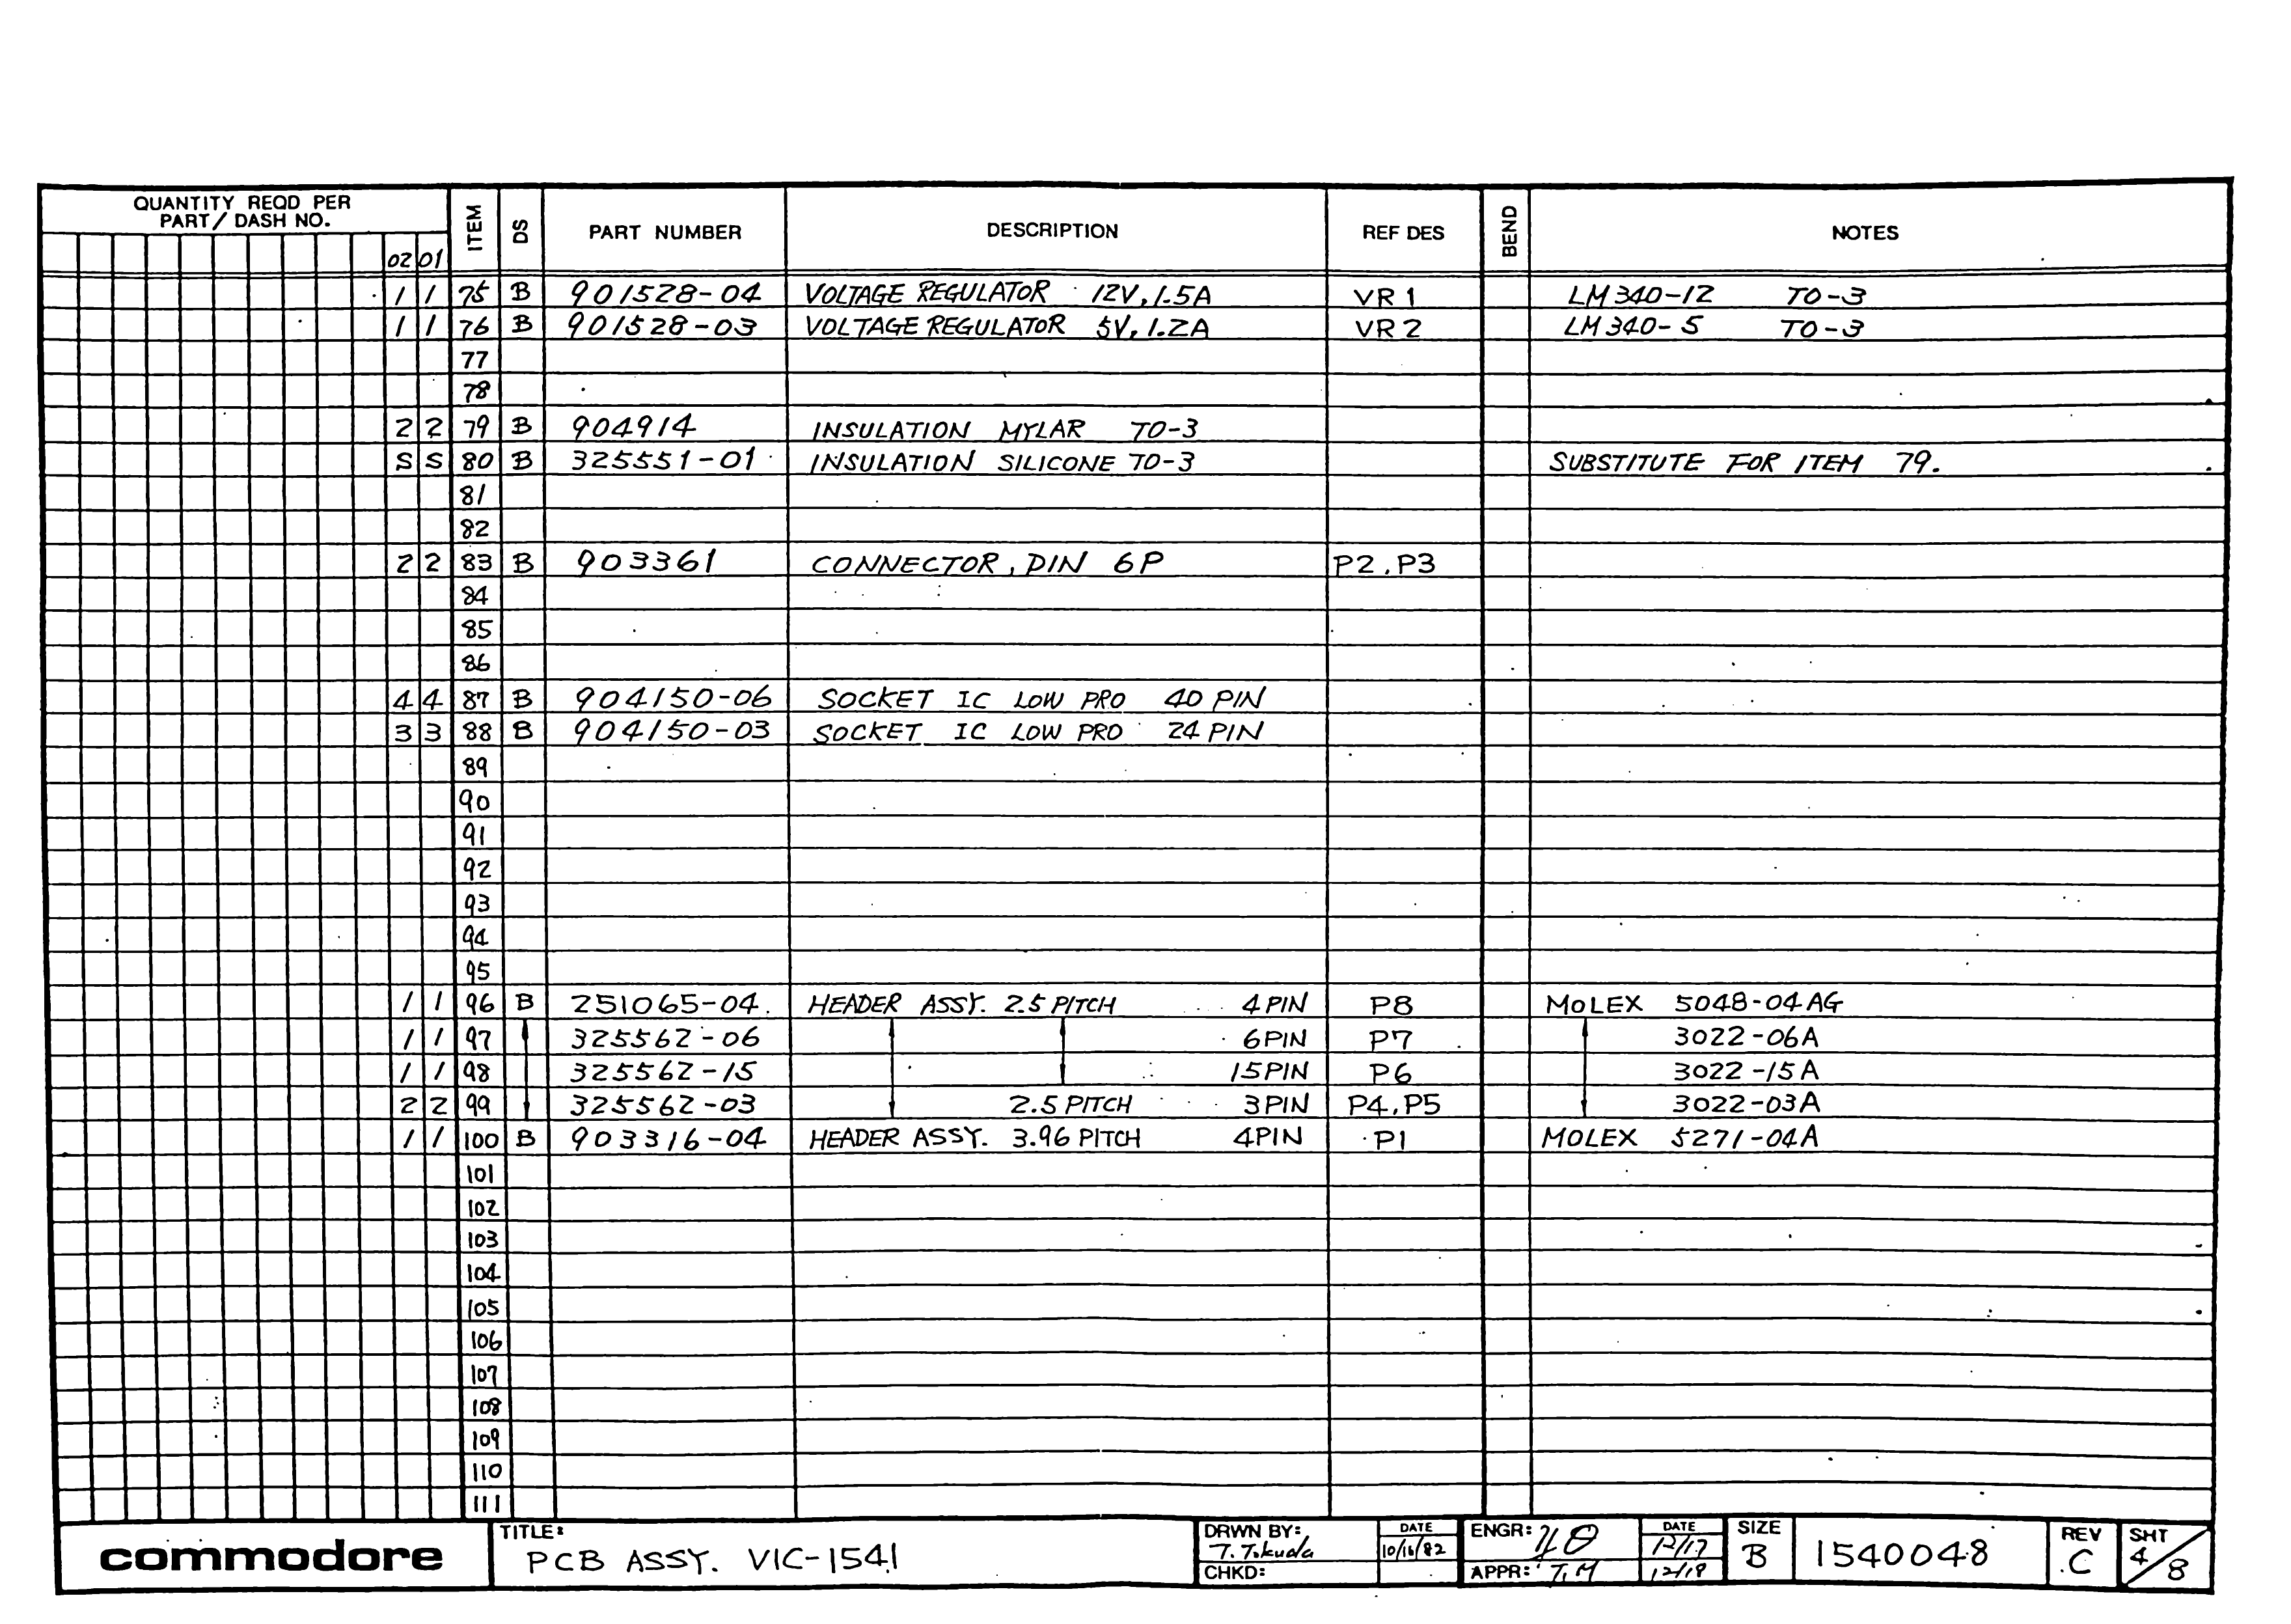 QUANTITY REQD PER
PART / DASH NO.
02 01
ITEM DS PART NUMBER DESCRIPTION REF DES BEND NOTES
1 1 75 B 901528-04 VOLTAGE REGULATOR 12V, 1.5A VR1 LM340-12 TO-3
1 1 76 B 901528-03 VOLTAGE REGULATOR 5V, 1.2A VR2 LM340-5 TO-3
77
78
2 2 79 B 904914 INSULATION MYLAR TO-3
S S 80 B 325551-01 INSULATION SILICONE TO-3 SUBSTITUTE FOR ITEM 79.
81
82
2 2 83 B 903361 CONNECTOR, DIN 6P P2, P3
84
85
86
4 4 87 B 904150-06 SOCKET IC LOW PRO 40 PIN
3 3 88 B 904150-03 SOCKET IC LOW PRO 24 PIN
89
90
91
92
93
94
95
1 1 96 B 251065-04 HEADER ASSY. 2.5 PITCH 4 PIN P8 MOLEX 5048-04AG
1 1 97 325562-06 6PIN P7 3022-06A
1 1 98 325562-15 15PIN P6 3022-15A
2 2 99 325562-03 2.5 PITCH 3PIN P4, P5 3022-03A
1 1 100 B 903316-04 HEADER ASSY. 3.96 PITCH 4PIN P1 MOLEX 5271-04A
101
102
103
104
105
106
107
108
109
110
111
commodore
TITLE:
PCB ASSY. VIC-1541
DRWN BY: T. Tokuda
DATE 10/16/82
CHKD:
ENGR:
DATE 12/17
APPR: T.M 12/18
SIZE
B
1540048
REV
C
SHT
4/8